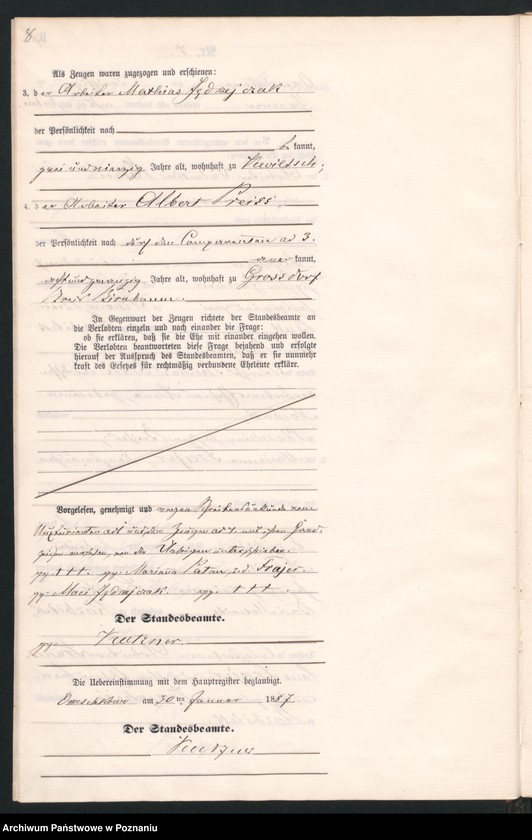 8
Als Zeugen waren zugezogen und erschienen:
3. d er Arbeiter Mathias Jędrzejczak
der Persönlichkeit nach
be kannt,
zwei und vierzig Jahre alt, wohnhaft zu Kwiltsch;
4. d er Arbeiter Albert Preiss,
der Persönlichkeit nach durch den Comparenten ad 3.
aner kannt,
acht und zwanzig Jahre alt, wohnhaft zu Grossdorf
Birnbaum.
In Gegenwart der Zeugen richtete der Standesbeamte an
die Verlobten einzeln und nach einander die Frage:
ob sie erklären, daß sie die Ehe mit einander eingehen wollen.
Die Verlobten beantworteten diese Frage bejahend und erfolgte
hierauf der Ausspruch des Standesbeamten, daß er sie nunmehr
kraft des Gesetzes für rechtmäßig verbundene Eheleute erkläre.
Vorgelesen, genehmigt und wegen Schreibensunkunde vom
ad 1 und dem Zeugen ad 4. mit ihren Hand-
zeichen versehen, von den Uebrigen unterschrieben.
gez. +++. gez. Mariana Ratan z d Frajer
gez. Maci Jędrzejczak. gez. +++.
Der Standesbeamte.
gez.
Die Uebereinstimmung mit dem Hauptregister beglaubigt.
am 30 ten Januar 1887
Der Standesbeamte.
Archiwum Państwowe w Poznaniu